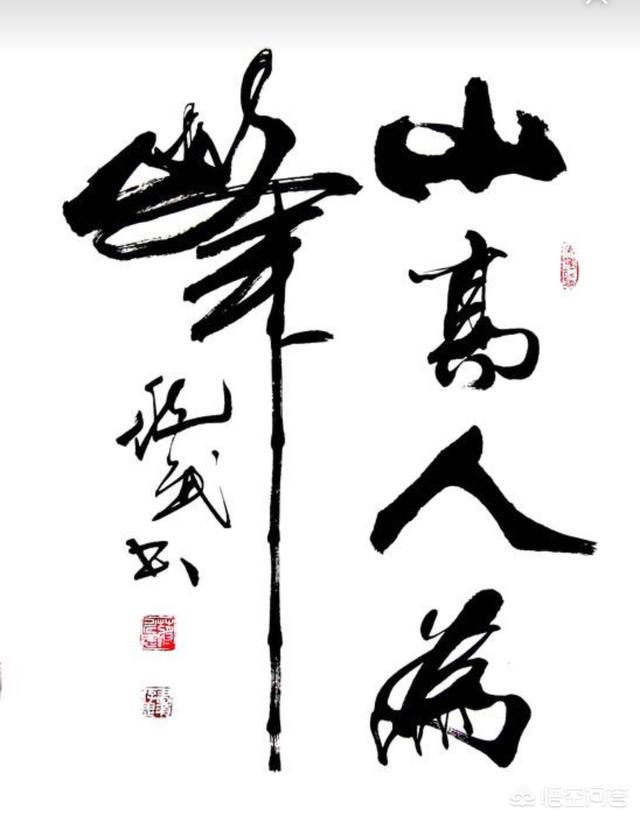 山高人為
峰
武书
悟空问答